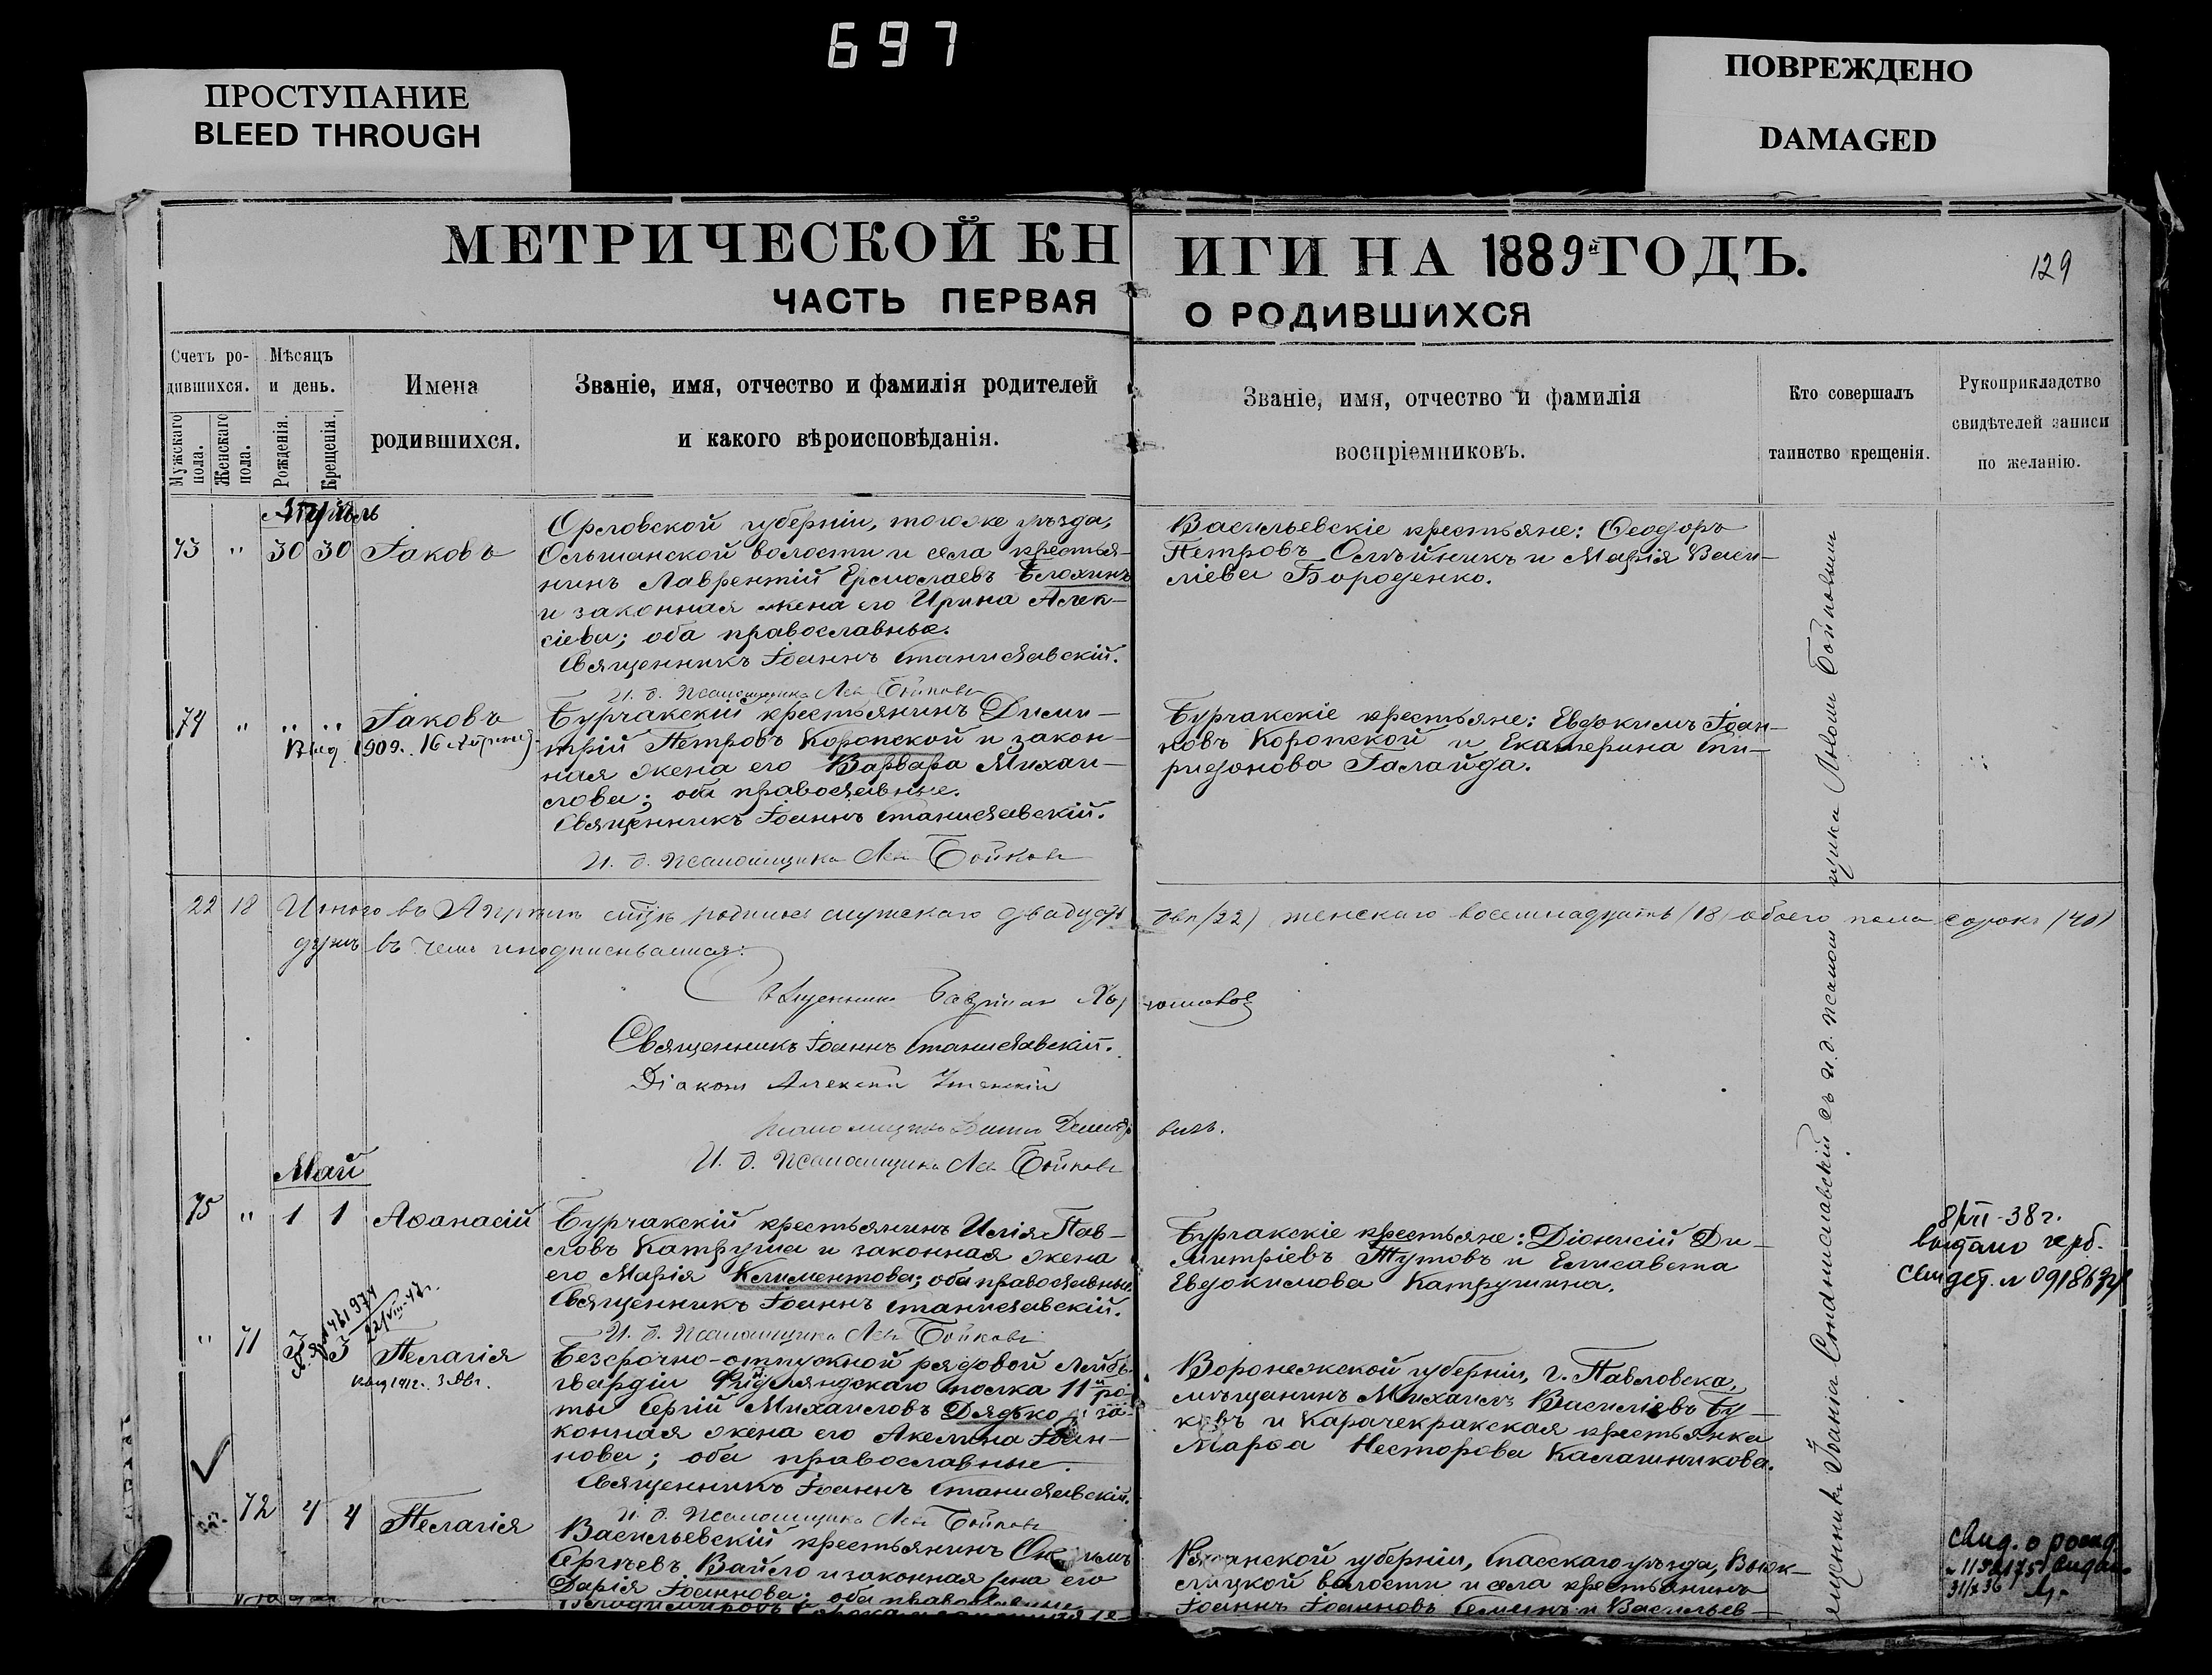 697
ПРОСТУПАНИЕ
BLEED THROUGH
ПОВРЕЖДЕНО
DAMAGED
МЕТРИЧЕСКОЙ КНИГИ НА 1889й ГОДЪ.
129
ЧАСТЬ ПЕРВАЯ О РОДИВШИХСЯ
Счетъ ро-
дившихся.
Мужскаго пола.
Женскаго пола.
Мѣсяцъ
и день.
Рожденія.
Крещенія.
Имена
родившихся.
Званіе, имя, отчество и фамилія родителей
и какого вѣроисповѣданія.
Званіе, имя, отчество и фамилія
воспріемниковъ.
Кто совершалъ
таинство крещенія.
Рукоприкладство
свидѣтелей записи
по желанію.
Апрѣль
73 " 30 30 Іаковъ
Орловской губерніи, тогоже уѣзда,
Ольшанской волости и села крестья-
нинъ Лаврентій Ермолаевъ Блохинъ
и законная жена его Ирина Алек-
сіева; оба православные.
Священникъ Іоаннъ Станиславскій.
И. д. Псаломщика Левъ Бойковъ
Васильевскіе крестьяне: Ѳеодоръ
Петровъ Олѣйникъ и Марія Васи-
ліева Бороденко.
74 " " " Іаковъ
Выд. 1909. 16 Апрѣля
Бурчакскій крестьянинъ Дими-
трій Петровъ Коропской и закон-
ная жена его Варвара Михаи-
лова; оба православные.
Священникъ Іоаннъ Станиславскій.
И. д. Псаломщика Левъ Бойковъ
Бурчакскіе крестьяне: Евдокимъ Іоан-
новъ Коропской и Екатерина Спи-
ридонова Галайда.
22 18 Итого въ Апрѣлѣ родилось мужскаго двадцать два /22/ женскаго восемнадцать /18/ обоего пола сорокъ /40/
душъ въ чемъ и подписываемся:
Священникъ
Священникъ Іоаннъ Станиславскій.
Діаконъ Алексій
И. д. Псаломщика Левъ Бойковъ
Май
75 " 1 1 Аѳанасій
Бурчакскій крестьянинъ Илія Пав-
ловъ Катруша и законная жена
его Марія Климентова; оба православные.
Священникъ Іоаннъ Станиславскій.
И. д. Псаломщика Левъ Бойковъ
Бурчакскіе крестьяне: Діонисій Ди-
митріевъ Тутовъ и Елисавета
Евдокимова Катрушина.
8/VII-38г.
выдано герб.
свидет. №
" 71 3 3 Пелагія
22/VIII-47г.
Выд 1912. 3 Авг.
Безсрочно-отпускной рядовой Лейбъ-
гвардіи Финляндскаго полка 11й ро-
ты Сергій Михаиловъ Дядько и за-
конная жена его Акелина Іоан-
нова; оба православные.
Священникъ Іоаннъ Станиславскій.
И. д. Псаломщика Левъ Бойковъ
Воронежской губерніи, г. Павловска,
мѣщанинъ Михаилъ Василіевъ Бу-
ковъ и Карачекракская крестьянка
Марѳа Несторова Калашникова.
72 4 4 Пелагія
Васильевскій крестьянинъ
Сергѣевъ Вайло и законная жена его
Дарія Іоаннова; оба православные
Рязанской губерніи, Спасскаго уѣзда,
волости и села крестьянинъ
Іоаннъ Іоанновъ Семинъ и Васильев-
Свид. о рожд.
31/X 36
Священникъ Іоаннъ Станиславскій съ и. д. псаломщика Львомъ Бойковымъ